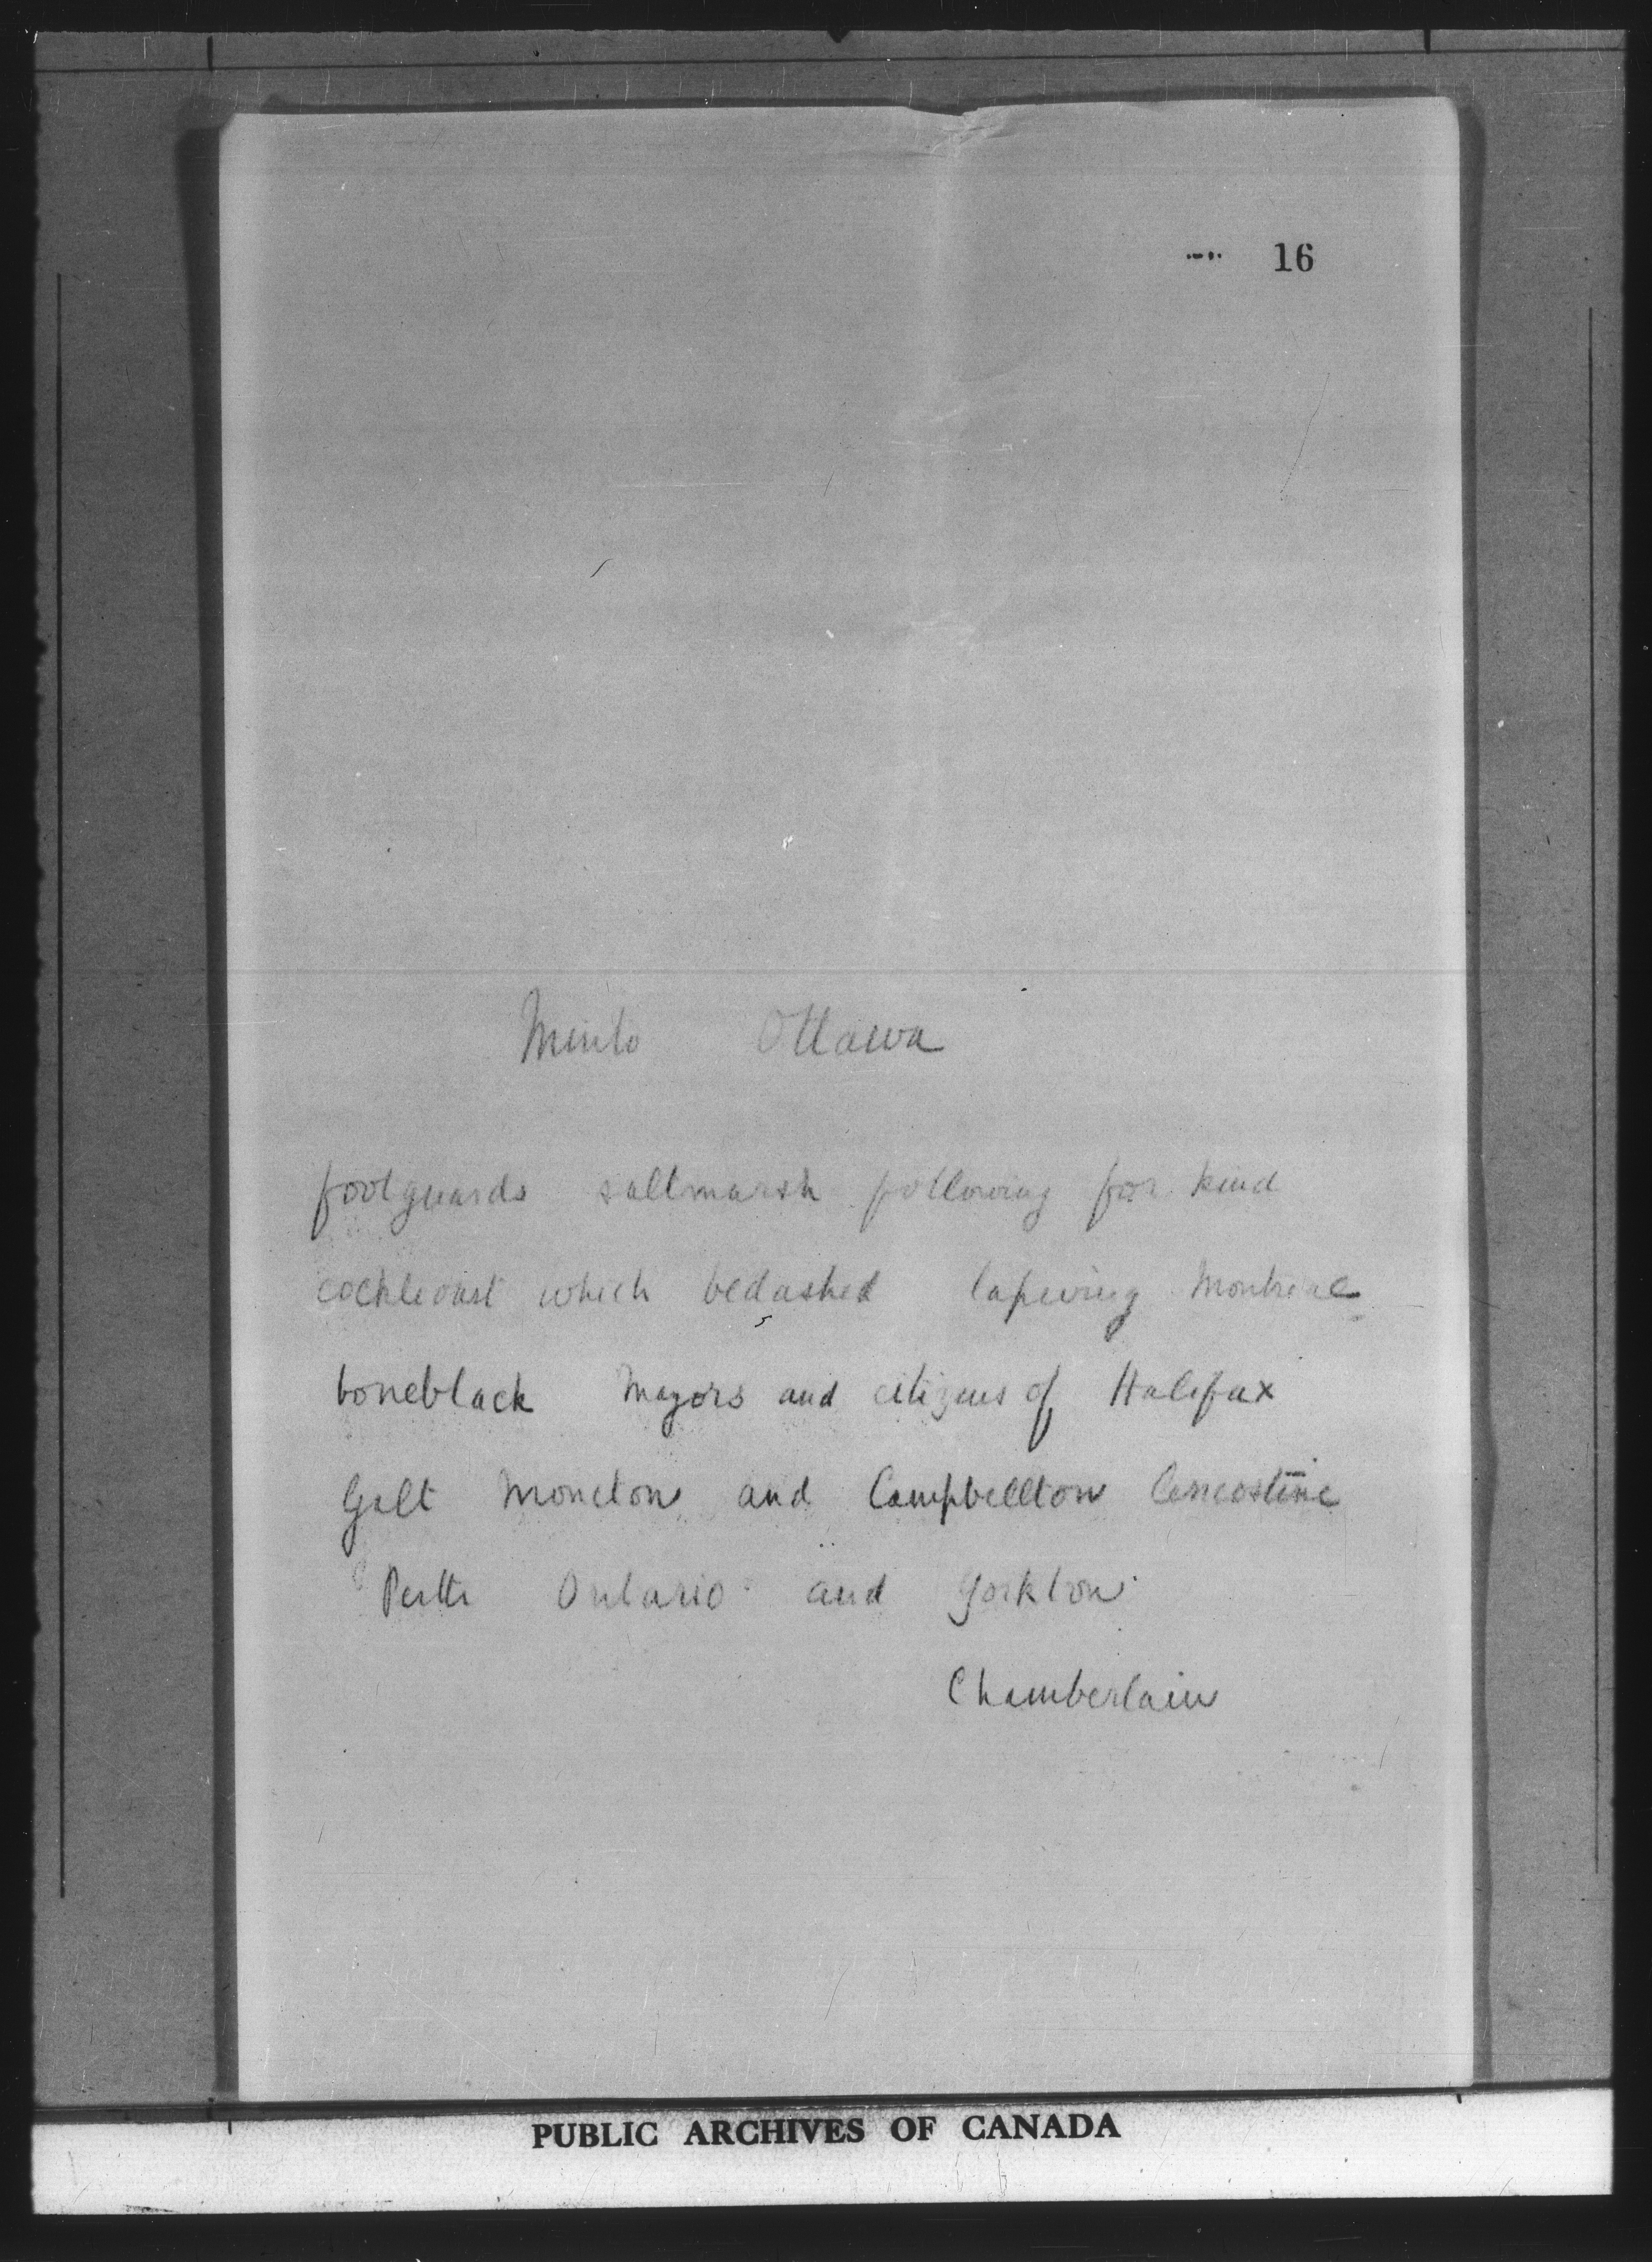 16
Minto Ottawa
footguards saltmarsh following for kind
which bedashed lapwing Montreal
boneblack Mayors and citizens of Halifax
Galt Moncton and Campbellton
Perth Ontario and Yorkton
Chamberlain
PUBLIC ARCHIVES OF CANADA